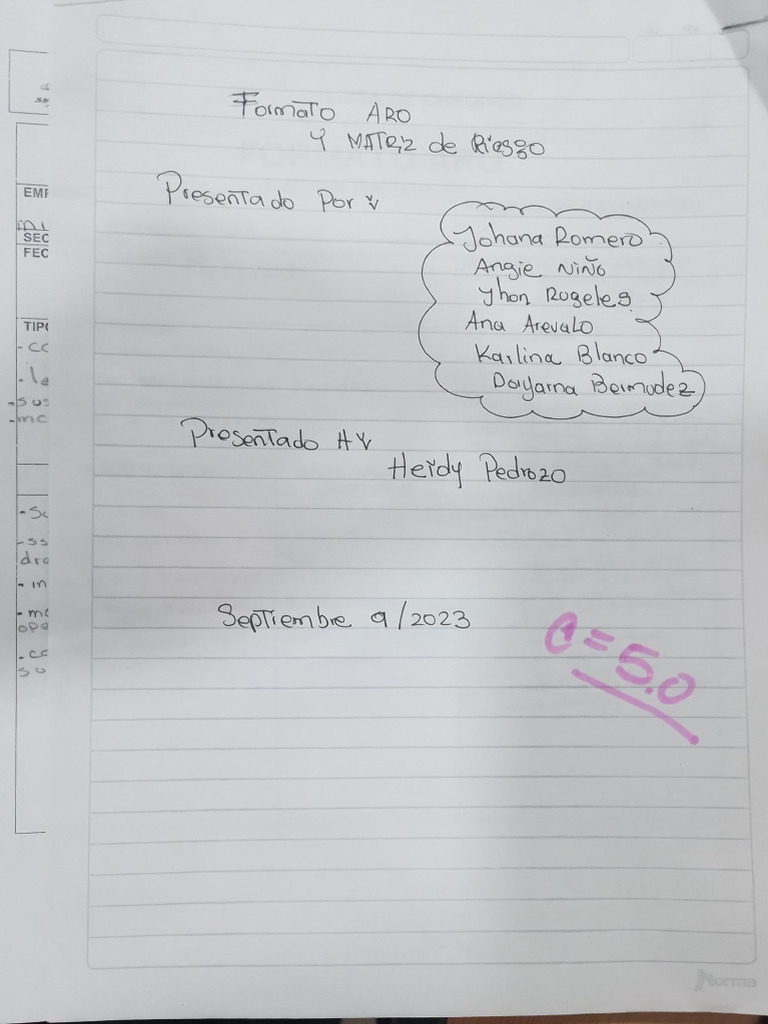 Formato ARO
Y MATRiz de Riesgo
Presentado Por
Johana Romero
Angie Niño
Jhon Rogeles
Ana Arevalo
Karlina Blanco
Dayanna Bermudez
Presentado A
Heidy Pedrozo
Septiembre 9/2023
C=5.0
Norma
SEC
FEC